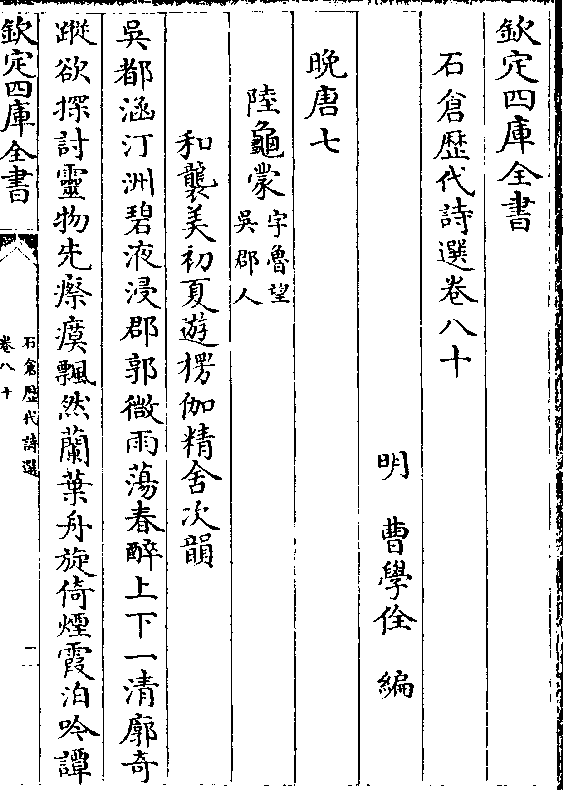 欽定四庫全書
石倉歴代詩選卷八十
明 曹學佺 編
晚唐七
陸龜蒙 字魯望
吳郡人
和襲美初夏遊楞伽精舍次韻
吳都涵汀洲碧液浸郡郭微雨蕩春醉上下一清廓奇
蹤欲探討靈物先瘵瘼飄然蘭葉舟旋倚煙霞泊吟譚
欽定四庫全書
石倉歴代詩選
卷八十
一